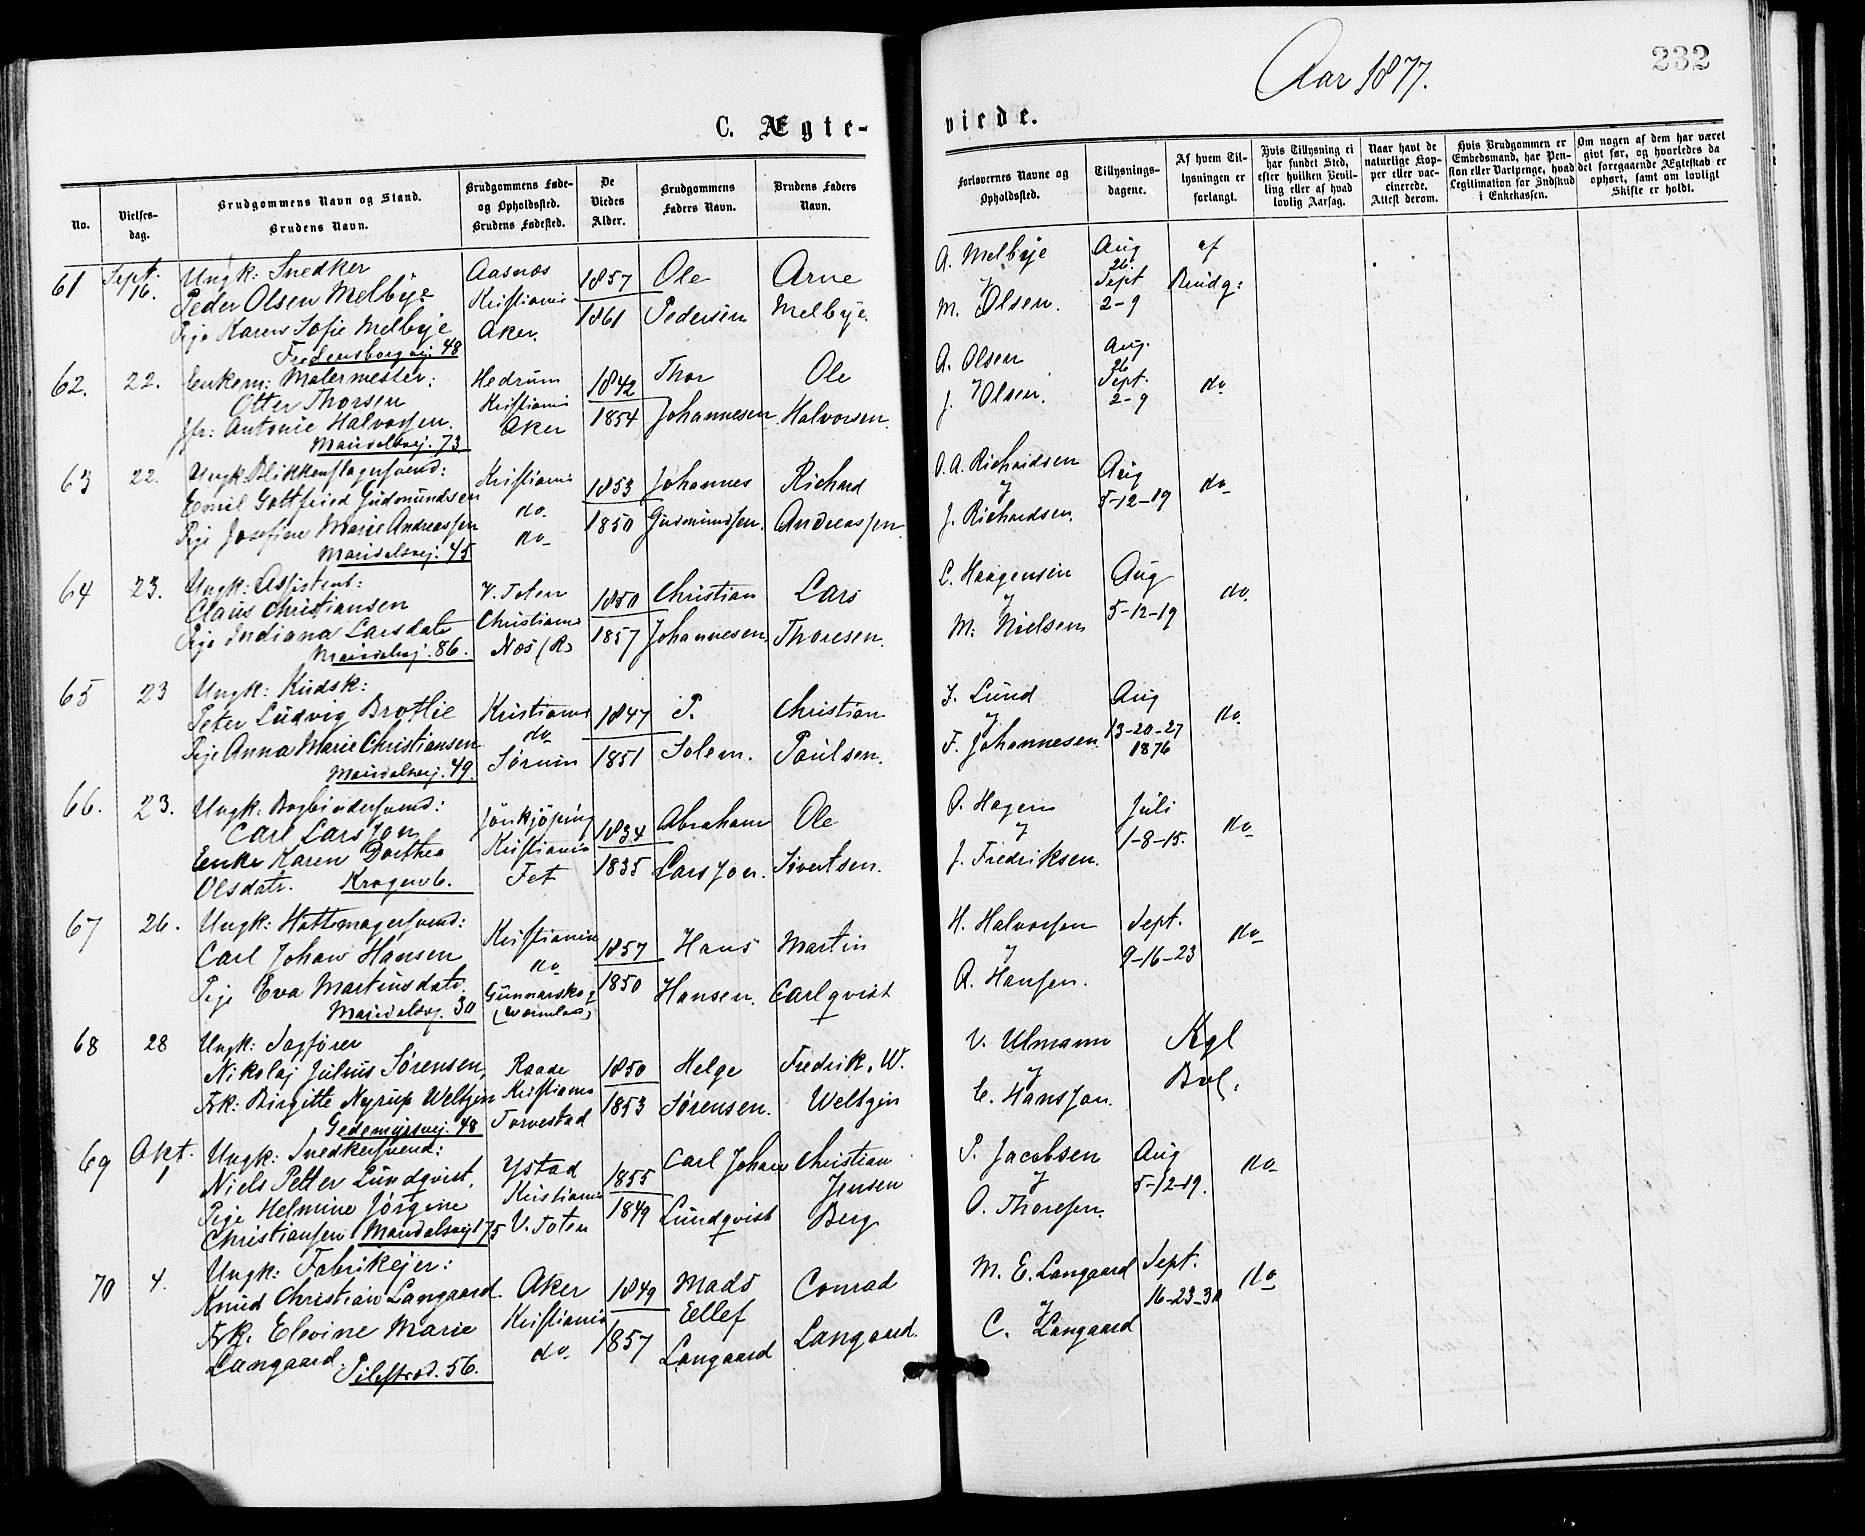 232
Aar 1877.
C. Ægte-
viede.
No.
Vielses-
dag.
Brudgommens Navn og Stand.
Brudens Navn.
Brudgommens Føde-
og Opholdssted.
Brudens Fødested.
De
Viedes
Alder.
Brudgommens
Faders Navn.
Brudens Faders
Navn.
Forlovernes Navne og
Opholdssted.
Tillysnings-
dagene.
Af hvem Til-
lysningen er
forlangt.
Hvis Tillysning ei
har fundet Sted,
efter hvilken Bevil-
ling eller af hvad
lovlig Aarsag.
Naar havt de
naturlige Kop-
per eller vac-
cinerede.
Attest derom.
Hvis Brudgommen er
Embedsmand, har Pen-
sion eller Vartpenge, hvad
Legitimation for Indskud
i Enkekassen.
Om nogen af dem har været
givt før, og hvorledes da
det foregaaende Ægteskab er
ophørt, samt om lovligt
Skifte er holdt.
61 Sept. 16.
Ungk: Snedker
Peder Olsen Melbye
Pige Karen Sofie Melbye
Fredensborgvej: 48
Aasnæs
Kristiania
Aker.
1857
1861
Ole
Pedersen
Arne
Melbye.
A. Melbye
M. Olsen.
Aug
26.
Sept
2-9
af
Brudg:
62. 22.
Enkem: Malermester:
Otter Thorsen
Jfr: Antonie Halvorsen.
Maridalsvej. 73
Hedrum
Kristiania
Aker
1842
1854
Thor
Johannesen
Ole
Halvorsen.
A. Olsen
J. Olsen.
Aug.
26
Sept.
2-9
do
63 22.
Ungk. Blikkenslagersvend:
Emil Gottfried Gudmundsen
Pige Josefine Marie Andreassen
Maridalsvej. 45
Kristiania
do.
do
1853
1850
Johannes
Gudmundsen.
Richard
Andreassen.
O. A. Richardsen
J. Richardsen.
Aug
5-12-19
do
64 23.
Ungk: Assistent:
Claus Christiansen
Pige Indiana Larsdatr
Maridalsvej. 86.
V. Toten
Christiania
Næs (R)
1850
1857
Christian
Johannesen
Lars
Thoresen.
L. Haagensen
M. Nielsen
Aug
5-12-19
do.
65 23
Ungk: Kudsk:
Peter Ludvig Brotlie
Pige Anna Marie Christiansen
Maridalsvej. 49.
Kristiania
do
Sørum
1847
1851
P.
Solem.
Christian
Paulsen.
J. Lund
F. Johannesen
Aug
13-20-27
1876
do.
66. 23.
Ungk: Bogbindersvend:
Carl Larsson
Enke Karen Dorthea
Olsdatr. Krogen 6.
Jönkjöping
Kristiania
Fet
1834
1835
Abraham
Larsson.
Ole
Sivertsen.
O. Hagen
J. Fredriksen.
Juli
1-8-15.
do
67 26.
Ungk: Hattemagersvend:
Carl Johan Hansen
Pige Eva Martinsdatr.
Maridalsvj. 30
Kristiania
do
Gunnarskog
1857
1850
Hans
Hansen.
Martin
Carlqvist
H. Halvorsen
A. Hansen.
Sept.
9-16-23
do
68 28
Ungk: Sagfører
Nikolaj Julius Sørensen,
Frk: Birgitte Nyrup Weltzin
Gedemyrsvej. 48
Raade
Kristiania
Torvestad
1850
1853
Helge
Sørensen.
Fredrik. W.
Weltzin
V. Ulmann
C. Hansson.
Kgl
Bvl.
69 Okt. 1
Ungk: Snedkersvend:
Niels Petter Lundqvist,
Pige Helmine Jørgine
Christiansen Maridalsvej 175
Ystad
Kristiania
V. Toten
1855
1849
Carl Johan
Lundqvist
Christian
Jensen
Berg
P. Jacobsen
O. Thoresen.
Aug
5-12-19.
do
70 4.
Ungk: Fabrikejer:
Knud Christian Langaard.
Frk. Elevine Marie
Langaard. Pilestræd. 56.
Aker
Kristiania
do
1849
1857
Mads
Ellef
Langaard
Conrad
Langaard.
M. E. Langaard
C. Langaard
Sept.
16-23-30
do